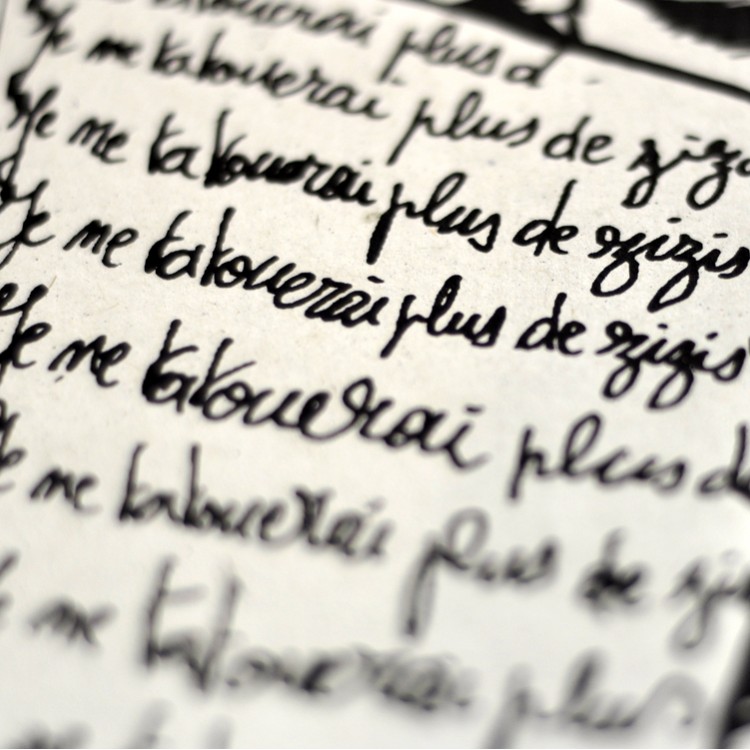 tatouerai plus d
Je me tatouerai plus de zizi
Je me tatouerai plus de zizis
Je me tatouerai plus de zizis
Je me tatouerai plus d
Je me tatouerai plus de zi
me tatouerai plus